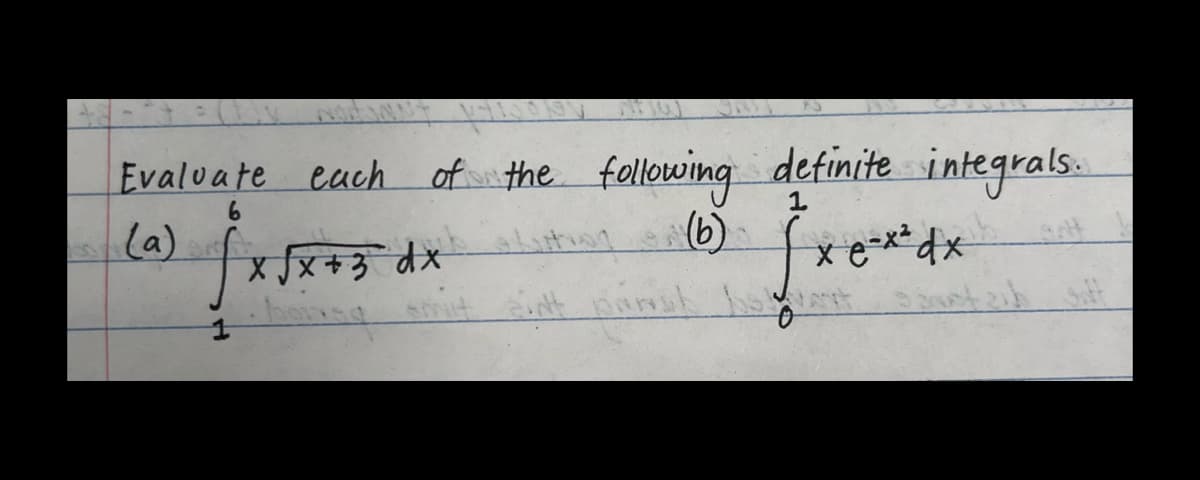 Evaluate each of the following definite integrals.
(a) ∫₁⁶ x √(x+3) dx (b) ∫₀¹ x e^(-x²) dx